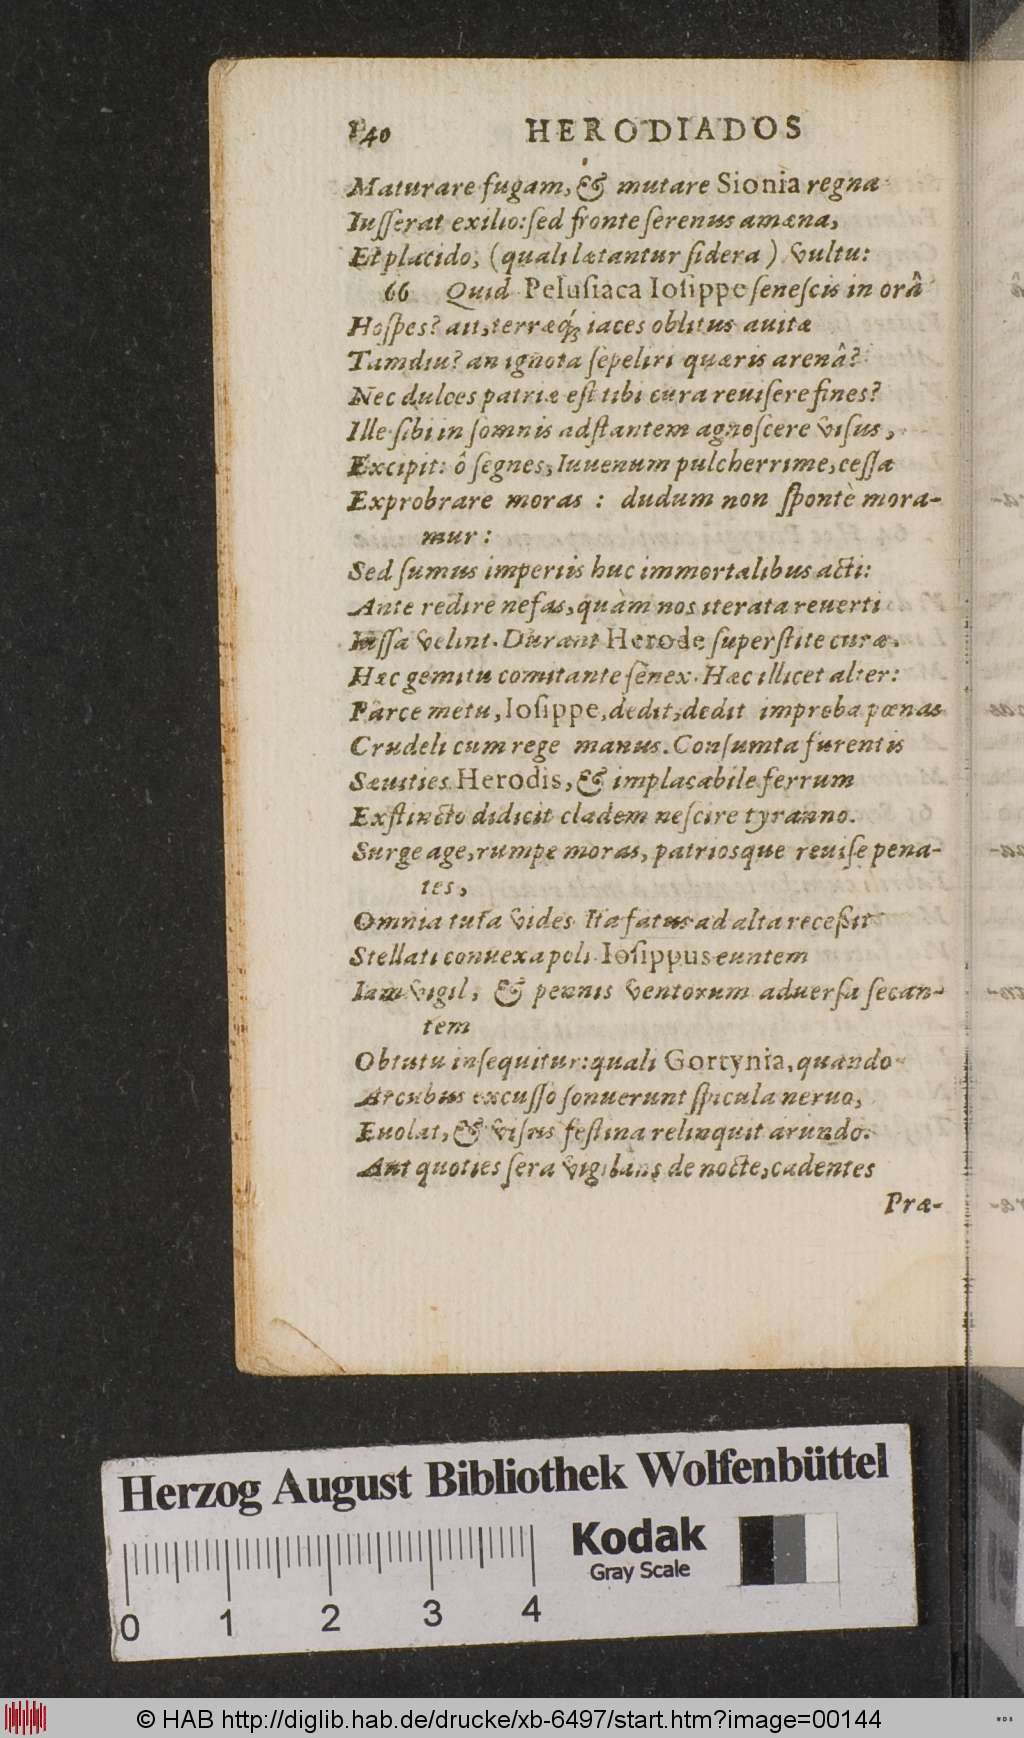 140 HERODIADOS
Maturare fugam, & mutare Sionia regna
Iusserat exilio: sed fronte serenus amæna,
Et placido, (quali lætantur sidera) vultu:
66 Quid Pelusiaca Iosippe senescis in orâ
Hospes? ait, terræq́; iaces oblitus auitæ
Tamdiu? an ignota sepeliri quæris arenâ?
Nec dulces patriæ est tibi cura reuisere fines?
Ille sibi in somnis adstantem agnoscere visus,
Excipit: ô segnes, Iuuenum pulcherrime, cessa
Exprobrare moras : dudum non spontè mora-
mur:
Sed sumus imperiis huc immortalibus acti:
Ante redire nefas, quàm nos iterata reuerti
Iussa velint. Durant Herode superstite curæ.
Hæc gemitu comitante senex. Hæc illicet alter:
Parce metu, Iosippe, dedit, dedit improba pœnas
Crudeli cum rege manus. Consumta furentis
Sæuities Herodis, & implacabile ferrum
Exstincto didicit cladem nescire tyranno.
Surge age, rumpe moras, patriosque reuise pena-
tes,
Omnia tuta vides. Ita fatus ad alta recessit
Stellati conuexa poli. Iosippus euntem
Iam vigil, & pennis ventorum aduersa secan-
tem
Obtutu insequitur: quali Gortynia, quando
Arcubus excusso sonuerunt spicula neruo,
Euolat, & visus festina relinquit arundo.
Aut quoties sera vigilans de nocte, cadentes
Præ-
Herzog August Bibliothek Wolfenbüttel
Kodak
Gray Scale
0 1 2 3 4
© HAB http://diglib.hab.de/drucke/xb-6497/start.htm?image=00144